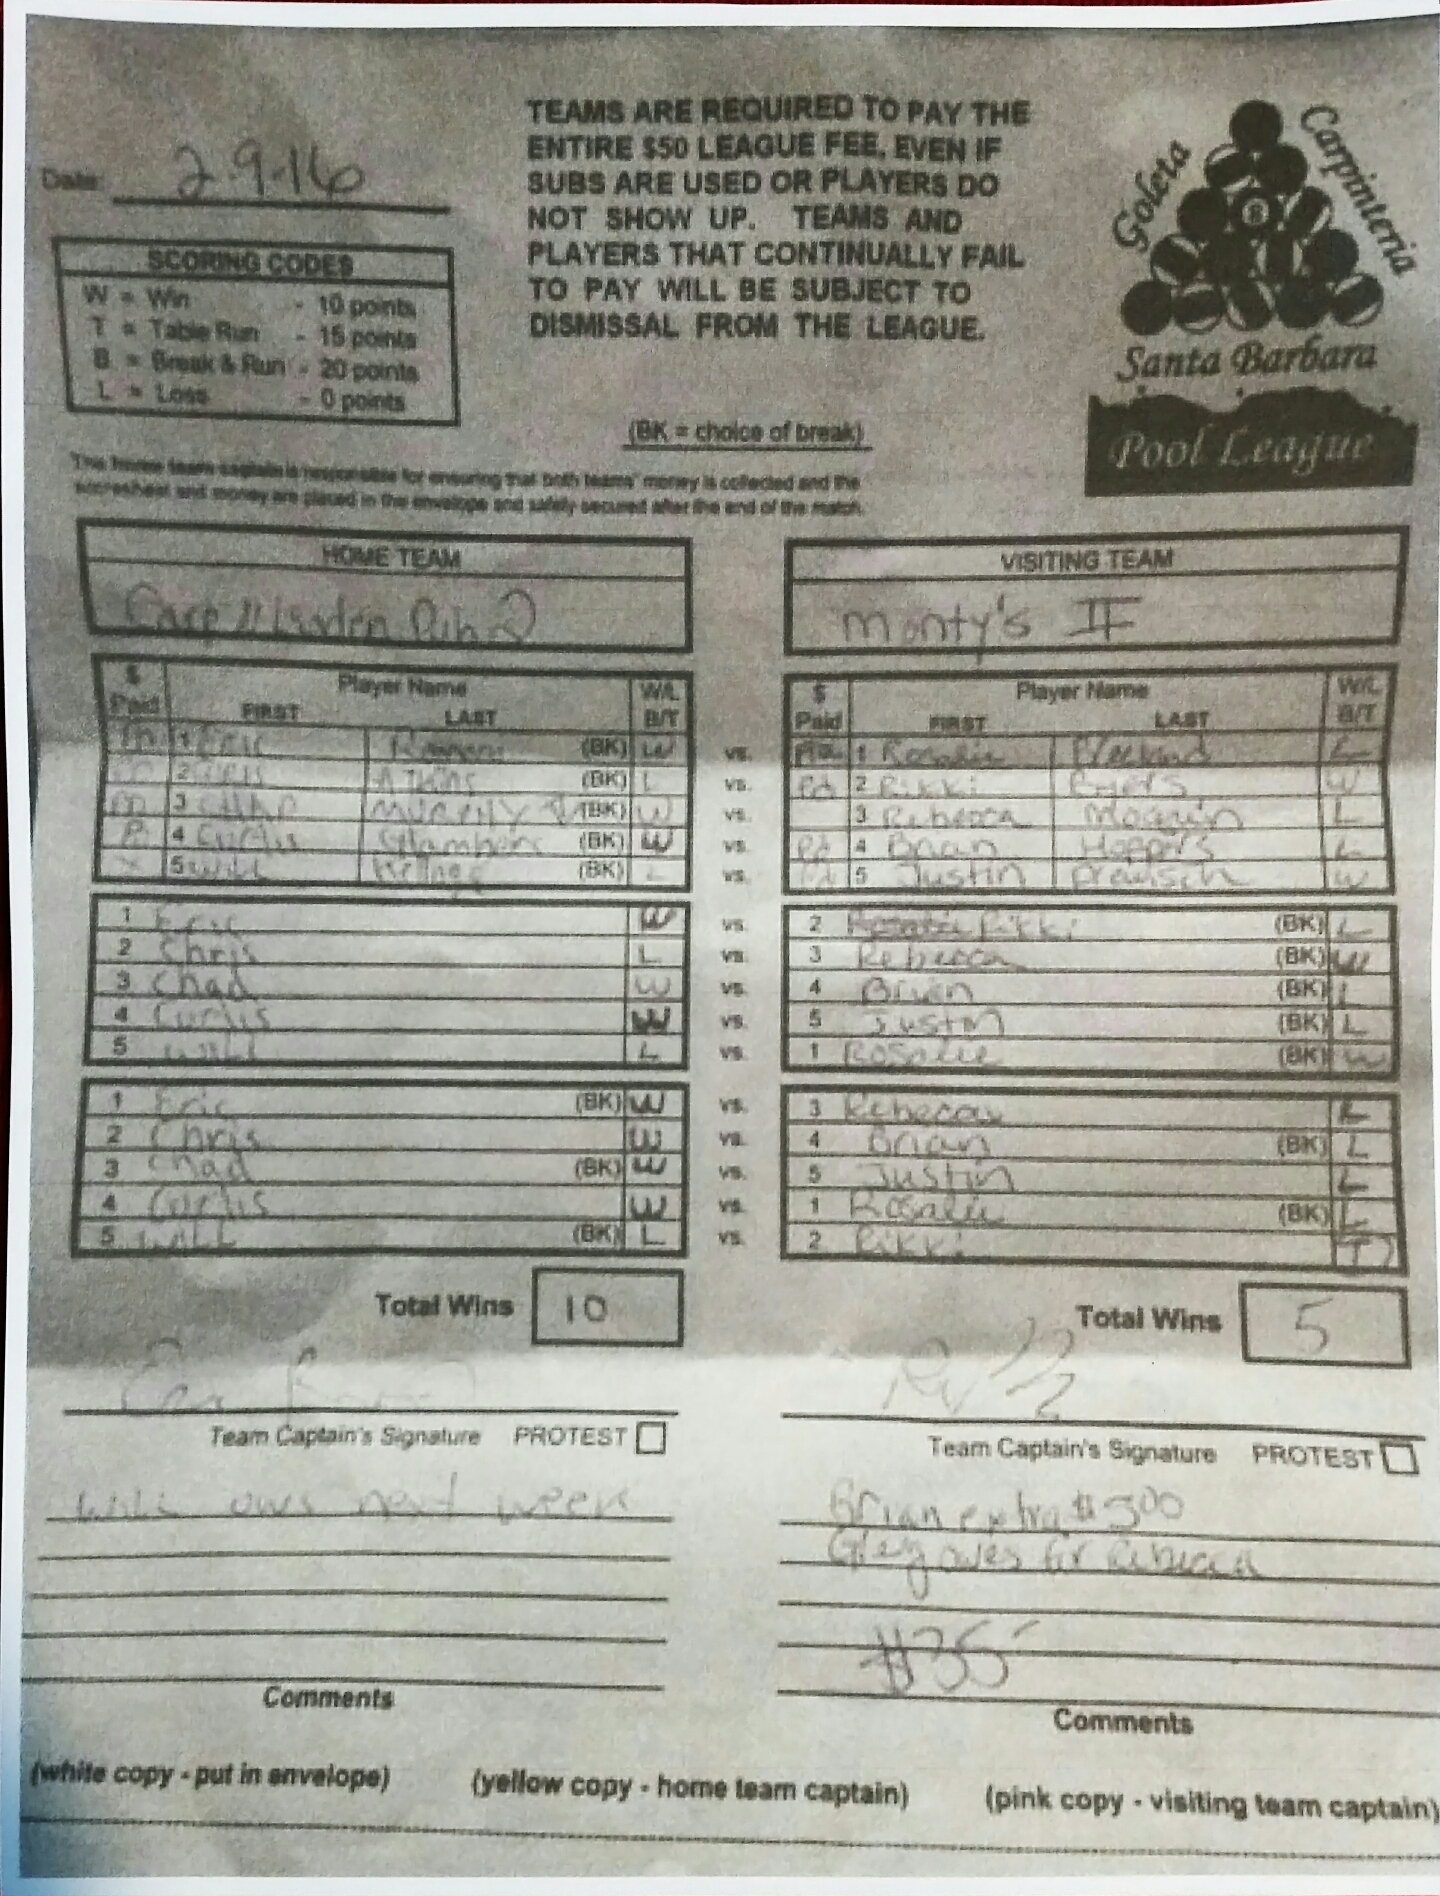 TEAMS ARE REQUIRED TO PAY THE
ENTIRE $50 LEAGUE FEE, EVEN IF
SUBS ARE USED OR PLAYERS DO
NOT SHOW UP. TEAMS AND
PLAYERS THAT CONTINUALLY FAIL
TO PAY WILL BE SUBJECT TO
DISMISSAL FROM THE LEAGUE.
Goleta
Carpinteria
8
Santa Barbara
Pool League
Date: 2-9-16
SCORING CODES
W = Win - 10 points
T = Table Run - 15 points
B = Break & Run - 20 points
L = Loss - 0 points
(BK = choice of break)
The home team captain is responsible for ensuring that both teams' money is collected and the
scoresheet and money are placed in the envelope and safely secured after the end of the match.
HOME TEAM
VISITING TEAM
Pub 2
Monty's II
$ Paid Player Name FIRST LAST W/L B/T
$ Paid Player Name FIRST LAST W/L B/T
1 Eric (BK) W vs. 1 Rosalie L
2 Chris Atkins (BK) L vs. Pd 2 Rikki W
3 Chad (BK) W vs. 3 Rebecca L
4 Curtis (BK) W vs. Pd 4 Brian L
5 Will (BK) L vs. 5 Justin W
1 Eric W vs. 2 Rikki (BK) L
2 Chris L vs. 3 Rebecca (BK) W
3 Chad W vs. 4 Brian (BK) L
4 Curtis W vs. 5 Justin (BK) L
5 Will L vs. 1 Rosalie (BK) W
1 Eric (BK) W vs. 3 Rebecca L
2 Chris W vs. 4 Brian (BK) L
3 Chad (BK) W vs. 5 Justin L
4 Curtis W vs. 1 Rosalie (BK) L
5 Will (BK) L vs. 2 Rikki T
Total Wins 10
Total Wins 5
Team Captain's Signature PROTEST
Team Captain's Signature PROTEST
Will owes next week
Brian extra
owes for Rebecca
$35
Comments
Comments
(white copy - put in envelope) (yellow copy - home team captain) (pink copy - visiting team captain)